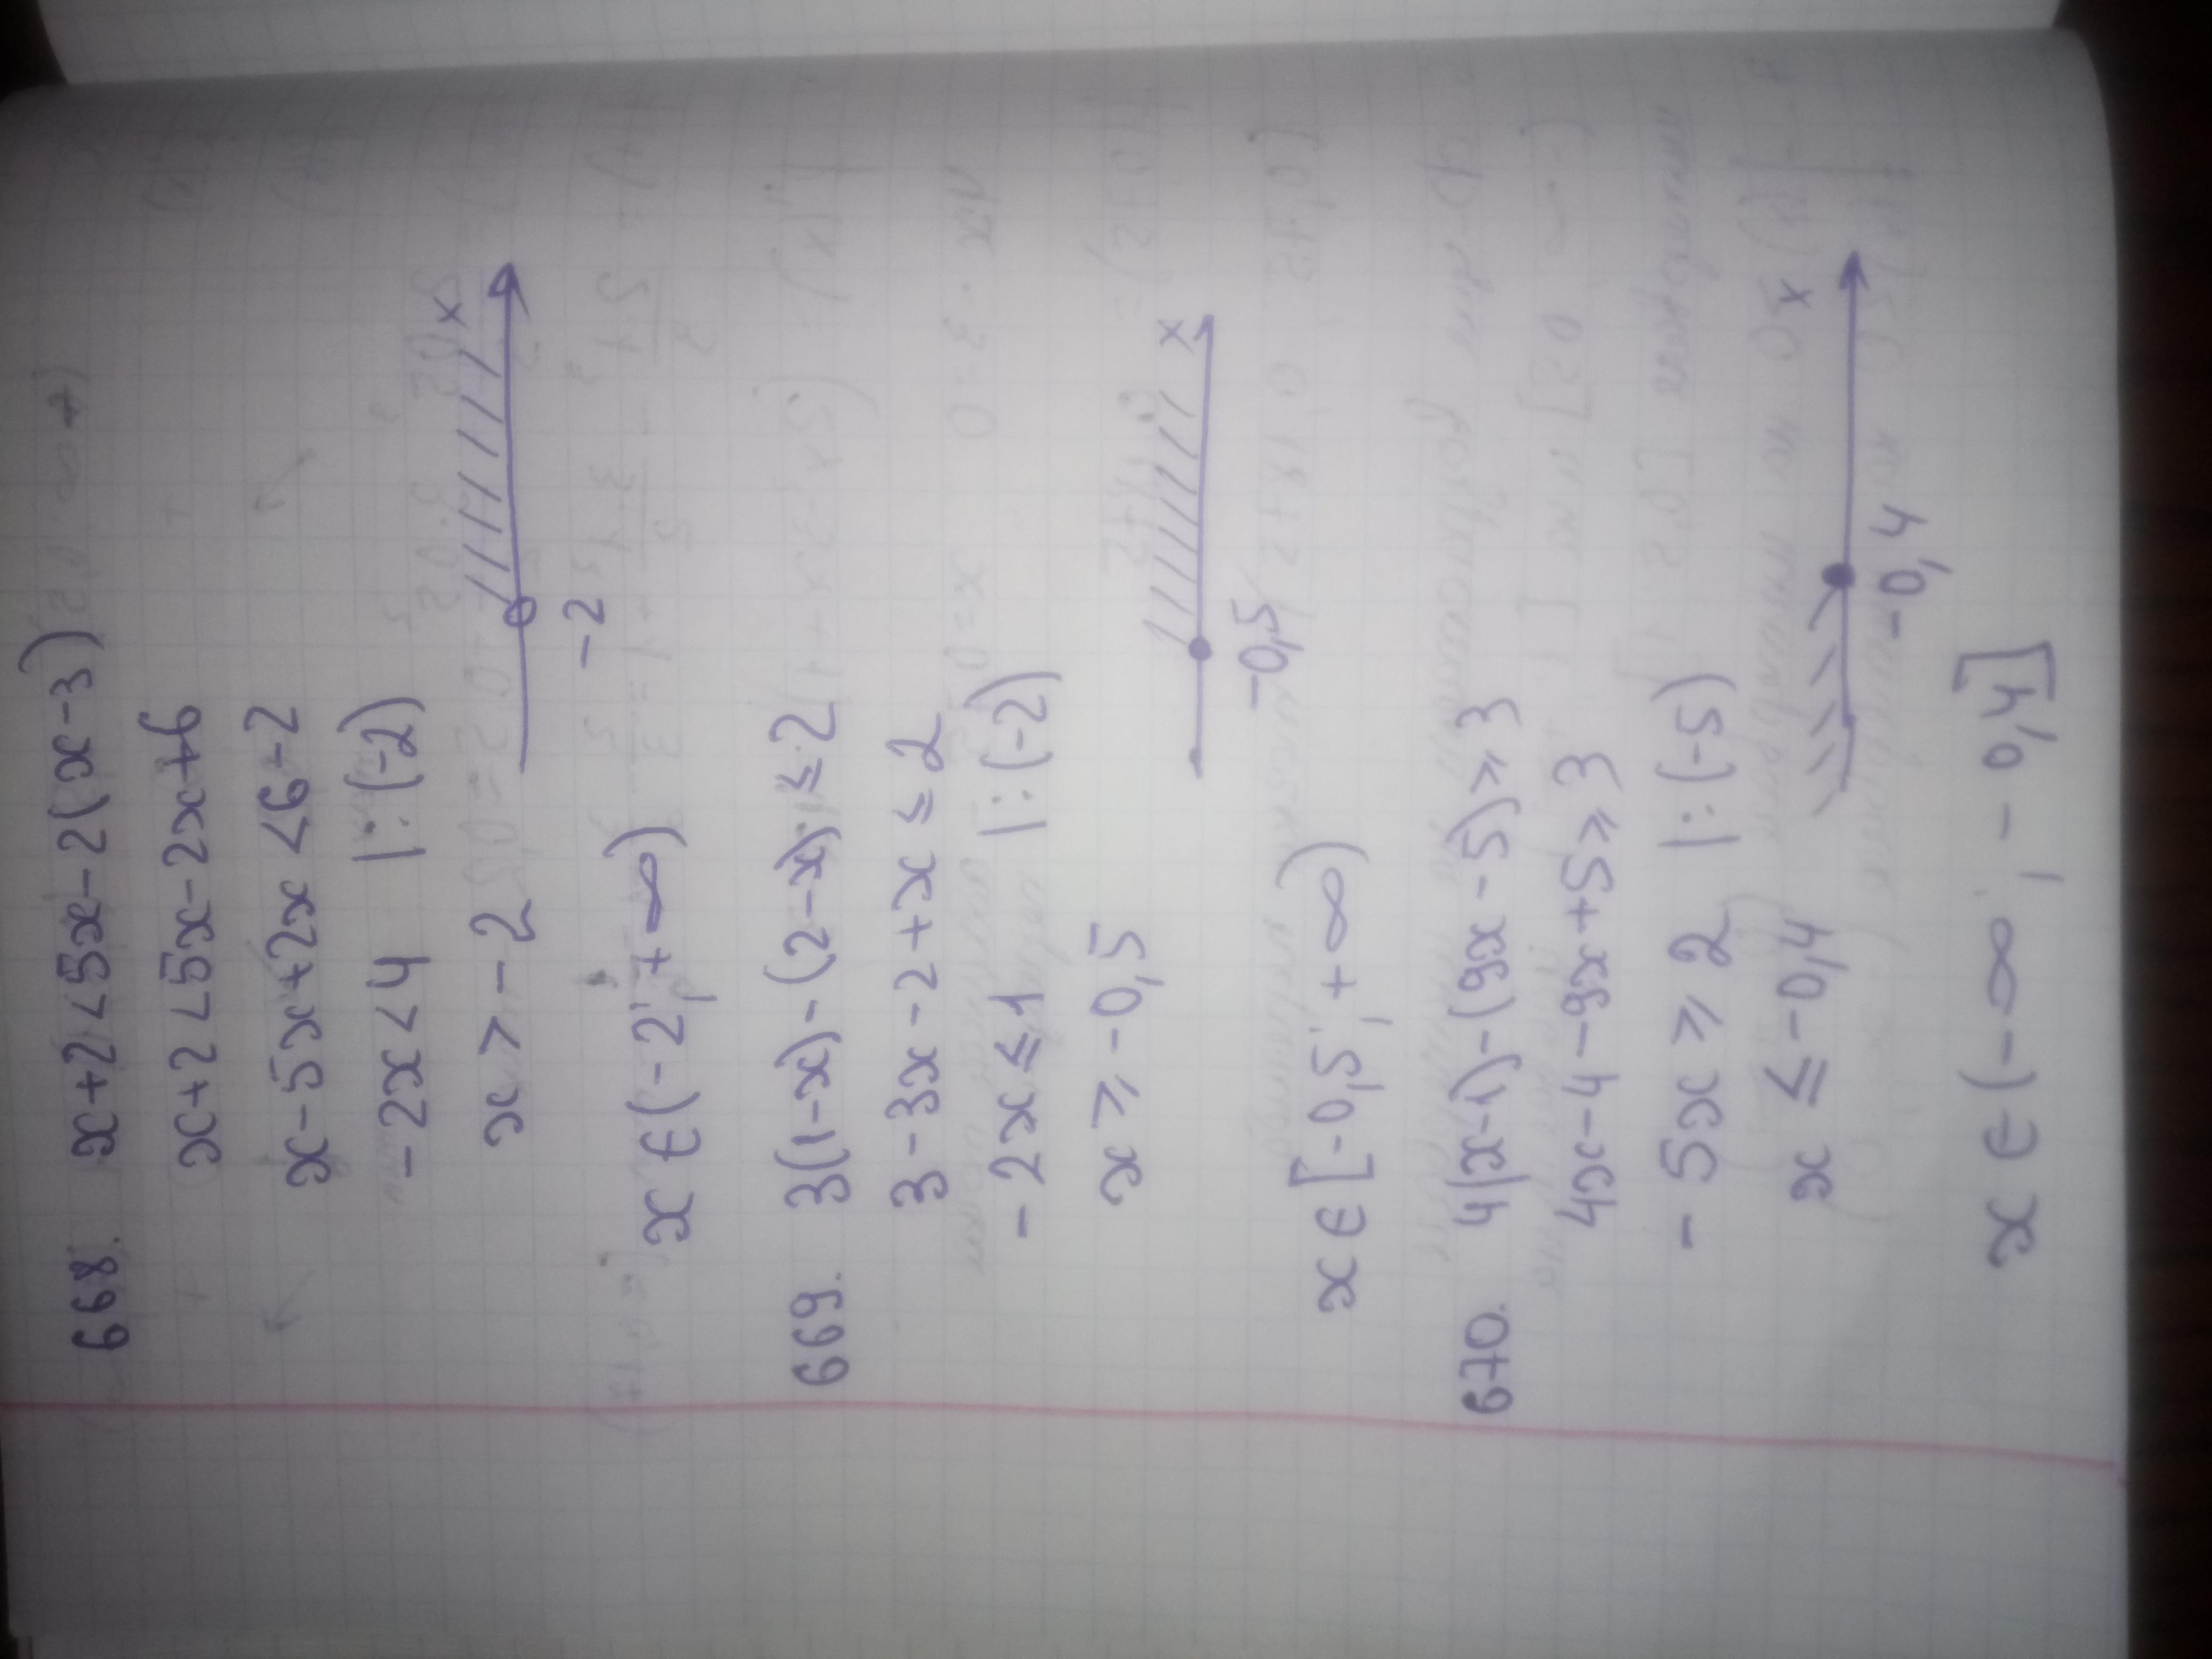 668. x+2<5x-2(x-3)
x+2<5x-2x+6
x-5x+2x<6-2
-2x<4 |:(-2)
x>-2
x
-2
x∈(-2;+∞)
669. 3(1-x)-(2-x)≤2
3-3x-2+x≤2
-2x≤1 |:(-2)
x≥-0,5
x
-0,5
x∈[-0,5;+∞)
670. 4(x-1)-(9x-5)≥3
4x-4-9x+5≥3
-5x≥2 |:(-5)
x≤-0,4
x
-0,4
x∈(-∞;-0,4]